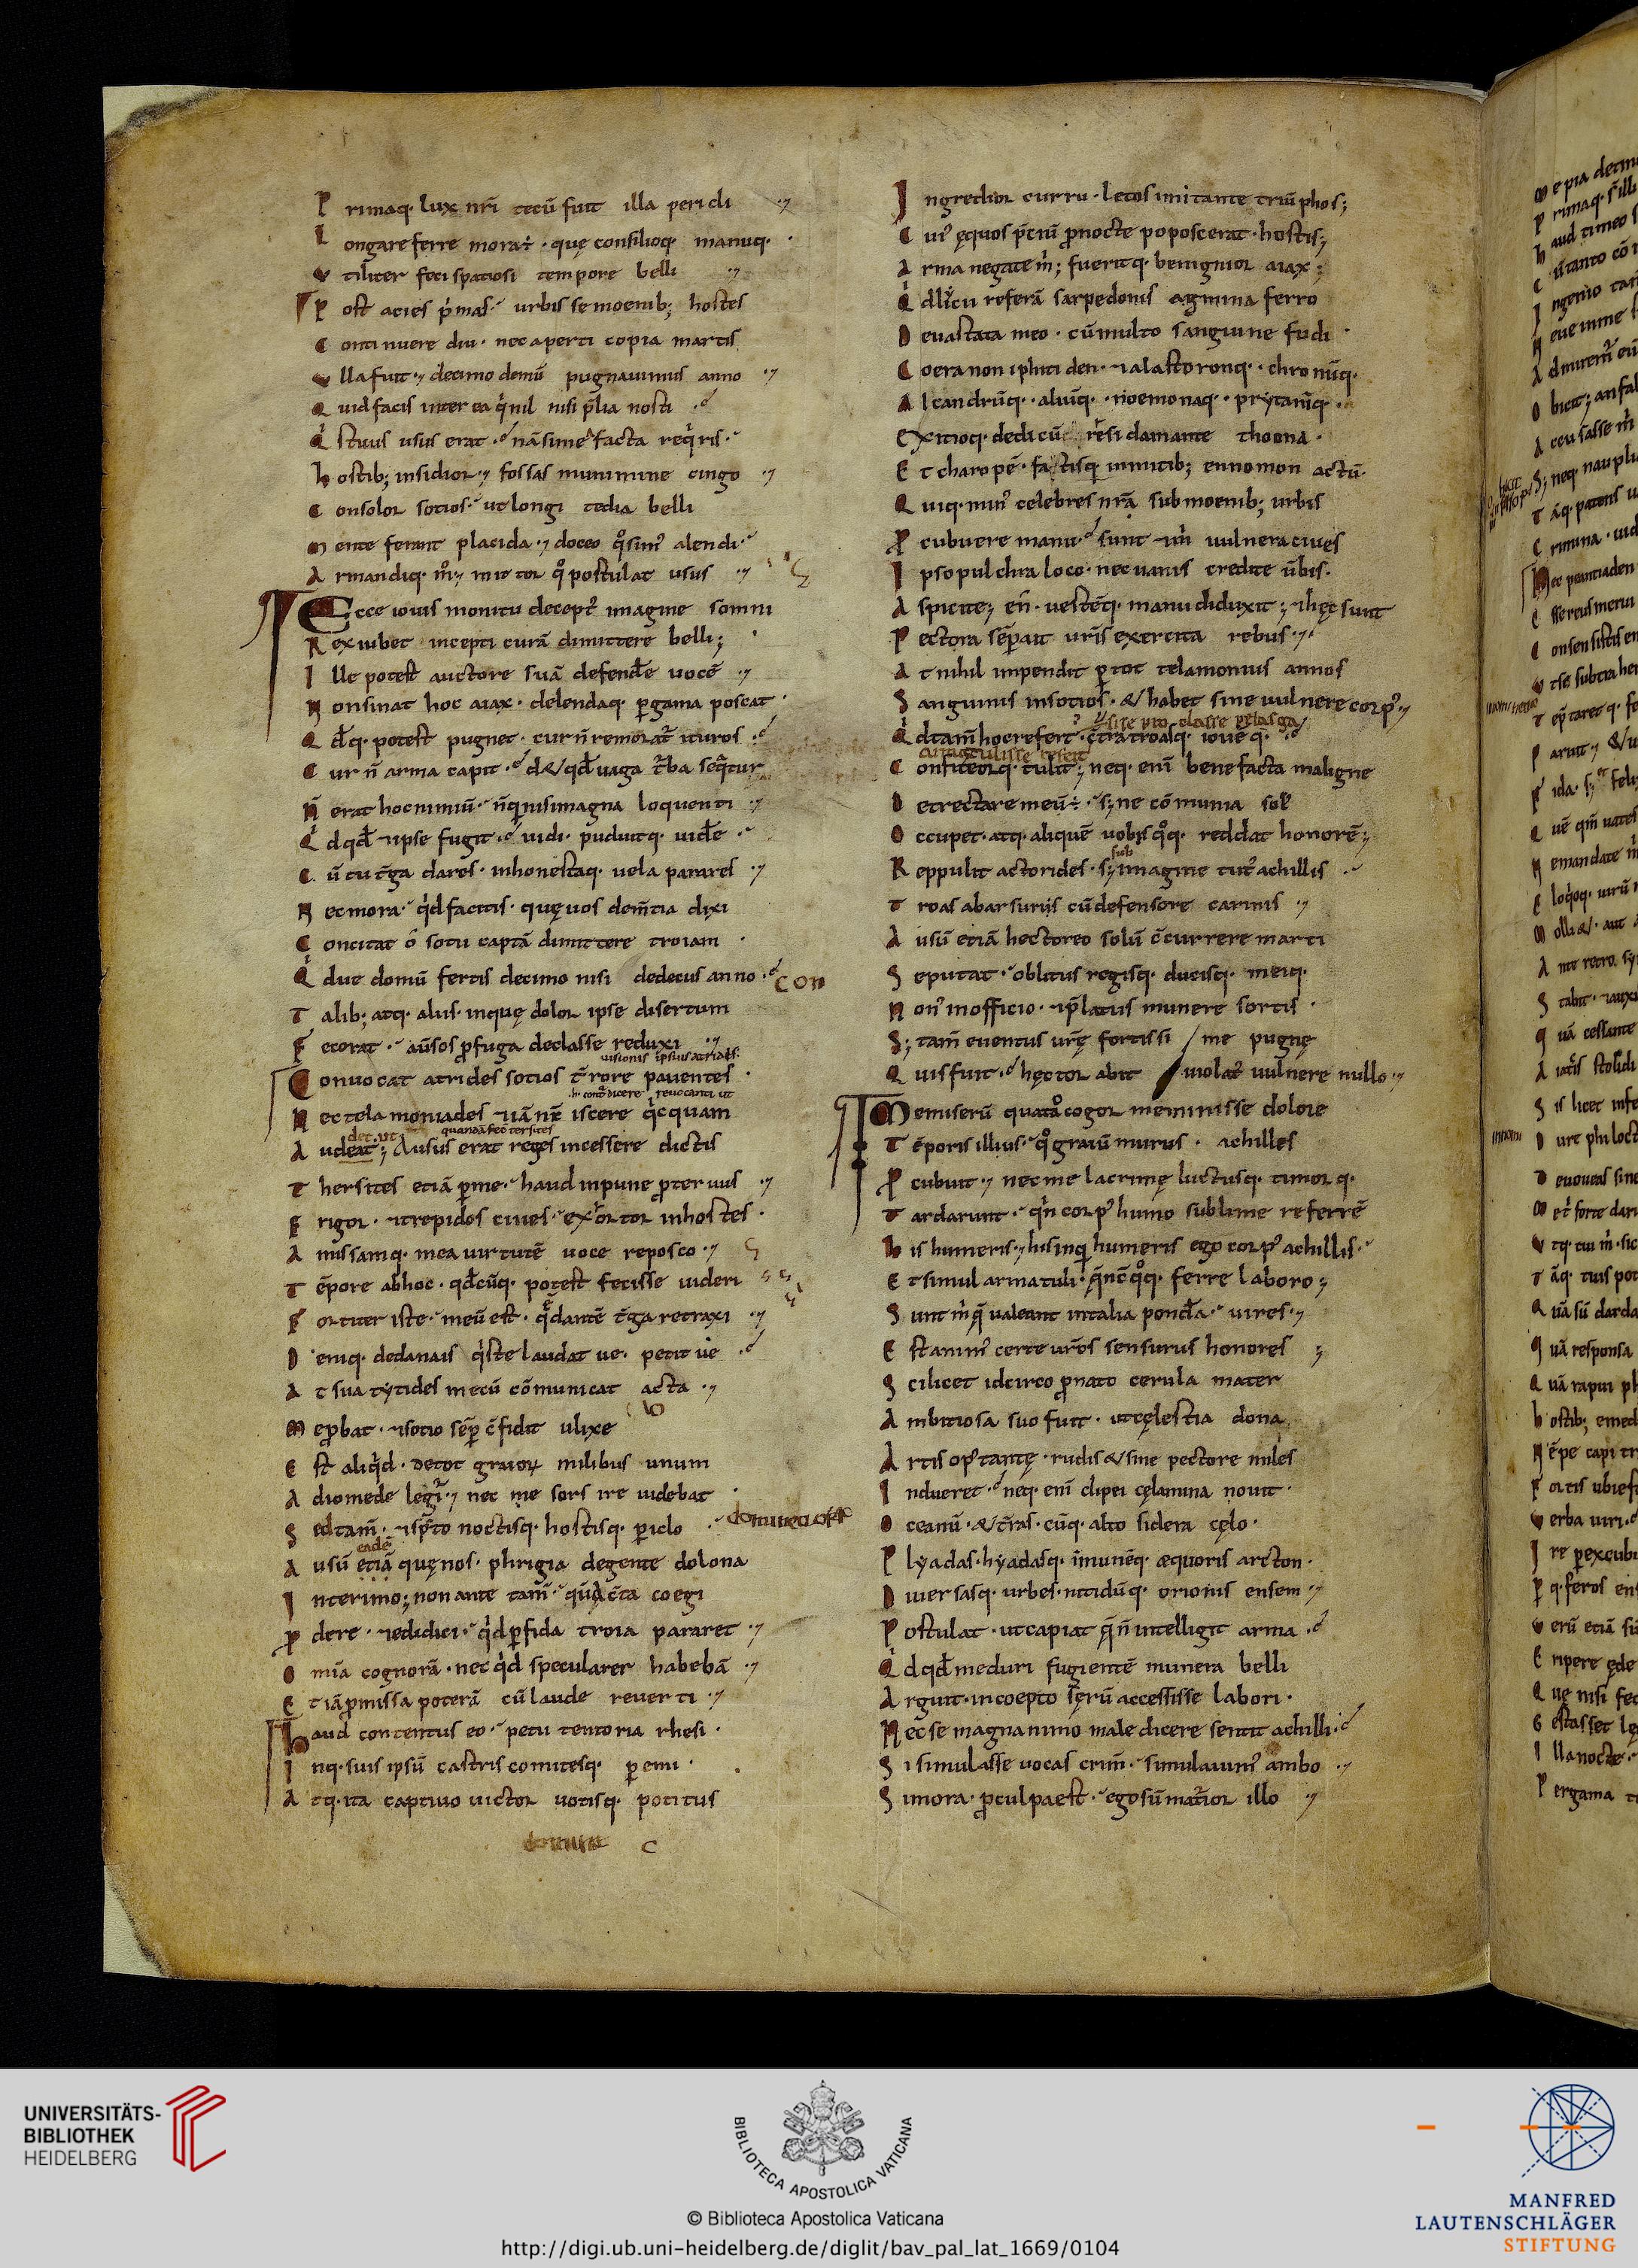 P rimaq. lux nr̄i tecū fuit illa pericli
L ongareferre morast · quę consilioq. manuq.
V tiliter feci spatiosi tempore belli
P ost acies p̍mas urbis se moenib; hostes
C ontinuere diu · nec aperti copia martis
V lla fuit decimo demū pugnauimus anno
Q uid facis inter ea q̍ nil nisi p̄lia nosti
Q̍ s tuus usus erat nā si mea facta req̍ris
h ostib; insidior fossas munimine cingo
C onsolor sotios ut longi tedia belli
M ente ferant placida doceo qͦ sim' alendi
A rmandiq. mͦ mittor qͦ postulat usus
Ecce iouis monitu decept' imagine somni
R ex iubet incepti curā dimittere belli;
I lle potest auctore suā defend̄e uocē
N on sinat hoc aiax · delendaq. ꝑgama poscat
Q d̄q. potest pugnet · cur n̄ remorat̄ ituros
C ur n̄ arma capit · d& qd̄ uaga t̄ba seq̄tur
N̄ erat hoc nimiū · n̄q nisi magna loquenti
Q̍ d qd̄ & ipse fugit · uidi · puduitq. uid̄e
C ū tu t̄ga dares · inhonestaq. uela parares
N ec mora q̍d facitis · quę uos dem̄tia dixi
C oncitat o sotii captā dimittere troiam
Q̍ d ue domū fertis decimo nisi dedecus anno
con
T alib; atq. aliis · inquę dolor ipse disertum
F ecerat · au̇sos ꝓfuga declasse reduxi
uisionis ipsius atrides
C onuocat atrides sotios t̄rore pauentes
N ec telamoniades &iā nc̄ iscere q̍cquam
A udeat; Ausus erat reges incessere dictis
T hersites etiā ꝑme · haud inpune ꝓteruus
E rigor · & trepidos ciues exortor inhostes
A missamq. mea uirtutē uoce reposco
T ēpore abhoc · qd̄cūq. potest fecisse uideri
F ortiter iste · meū est · q̍ dantē t̄ga retraxi
D eniq. dedanais q̍s te laudat ue · petit ue
A t sua tytides mecū cōmunicat acta
M e ꝓbat · & sotio semꝑ c̄fidit ulixe
E st aliq̍d · detot graioꝝ milibus unum
A diomede legi nec me sors ire iuDebat
S ed tam̄ · & sp̄to noctisq. hostisq. ꝑiclo
A usū etiā quę nos · phrigia degente dolona
I nterimo; non ante tam̄ · quā c̄ta coegi
P dere · & edidici · q̍d ꝑfida troia pararet
O mia cognorā · nec q̍d specularer habebā
E tiā ꝓmissa poterā cū laude reuerti
h aud contentus eo · petii tentoria rhesi
I nq. suis ipsū castris comitesq. ꝑemi
A tq. ita captiuo uictor uotisq. potitus
I ngredior curru · letos imitante triūphos;
C ui' ęquos p̄ciū ꝓ nocte poposcerat · hostis;
A rma negate m̍; fueritq. benignior aiax;
Q̍ d licii referā sarpedonis agmina ferro
D euastata meo · cū multo sanguine fudi
C oeranon iphiti den · & alastoronq. · chromiūq.
A lcandrūq. · aliūq. · noemonaq. · prytanīq.
Exitioq. dedi cū r̄sidamante thoona
E t charopē · fatisq. inmitib; ennomon actū
Q uiq. min' celebres nr̄a sub moenib; urbis
P cubuere manu · sunt & m̍ uulnera ciues
I pso pulchra loco · nec uanis credite ūbis
A spicite; en̄ · uestēq. manu diduxit; & hęc sunt
P ectora sēꝑ ait ur̄is exercita rebus
A t nihil inpendit ꝑ tot telamonius annos
S anguinis insotios · & habet sine uulnere corp'
Q̍ d tam̄ hoc refert · c̄tra troasq. ioue q.
C onfiteorq. tulit; neq. enī benefacta maligne
D etrectare meū÷ · s; ne cōmunia sol'
O ccupet · atq. aliquē uobis qͦq. reddat honorē;
R eppulit actorides · s; imagine tut' achillis
T roas abarsuris cū defensore carinis
A usū etiā hectoreo solū c̄currere marti
S e putat · oblitus regisq. ducisq. meiq.
N on' inofficio · & p̄latus munere sortis
S; tam̄ euentus ur̄ę fortissi me pugnę
Q uis fuit · hęctor abit uiolat' uulnere nullo
M e miserū quātͦ cogor meminisse dolore
T ēporis illius qͦ graiū murus · achilles
P cubuit nec me lacrimę luctusq. timorq.
T ardarunt · q̍n corp' humo sublime referrē
h is humeris his inquā humeris ego corp' achillis
E t simul arma tuli · q̄ nc̄ qͦq. ferre laboro;
S unt m̍ q̄ ualeant intalia pond̄a · uires
E st anim' certe ur̄os sensurus honores
S cilicet idcirco ꝓnato cerula mater
A mbitiosa suo fuit · ut cęlestia dona
A rtis op' tantę · rudis & sine pectore miles
I ndueret · neq. enī clipei cęlamina nouit
O ceanū · & t̄ras · cūq. alto sidera cęlo
P lyadas · hyadasq. īmunēq. æquoris arcton
D iuersasq. urbes · nitidūq. orionis ensem
P ostulat · ut capiat q̄ n̄ intelligit arma
Q̍ d qd̄ me duri fugientē munera belli
A rguit · incoepto serū accessisse labori
N ec se magnanimo maledicere sentit achilli
S i simulasse uocas crim̄ · simulauim' ambo
S i mora ꝓ culpa est · ego sū mat̄ior illo
UNIVERSITÄTS-
BIBLIOTHEK
HEIDELBERG
BIBLIOTECA APOSTOLICA VATICANA
© Biblioteca Apostolica Vaticana
http://digi.ub.uni-heidelberg.de/diglit/bav_pal_lat_1669/0104
MANFRED
LAUTENSCHLÄGER
STIFTUNG